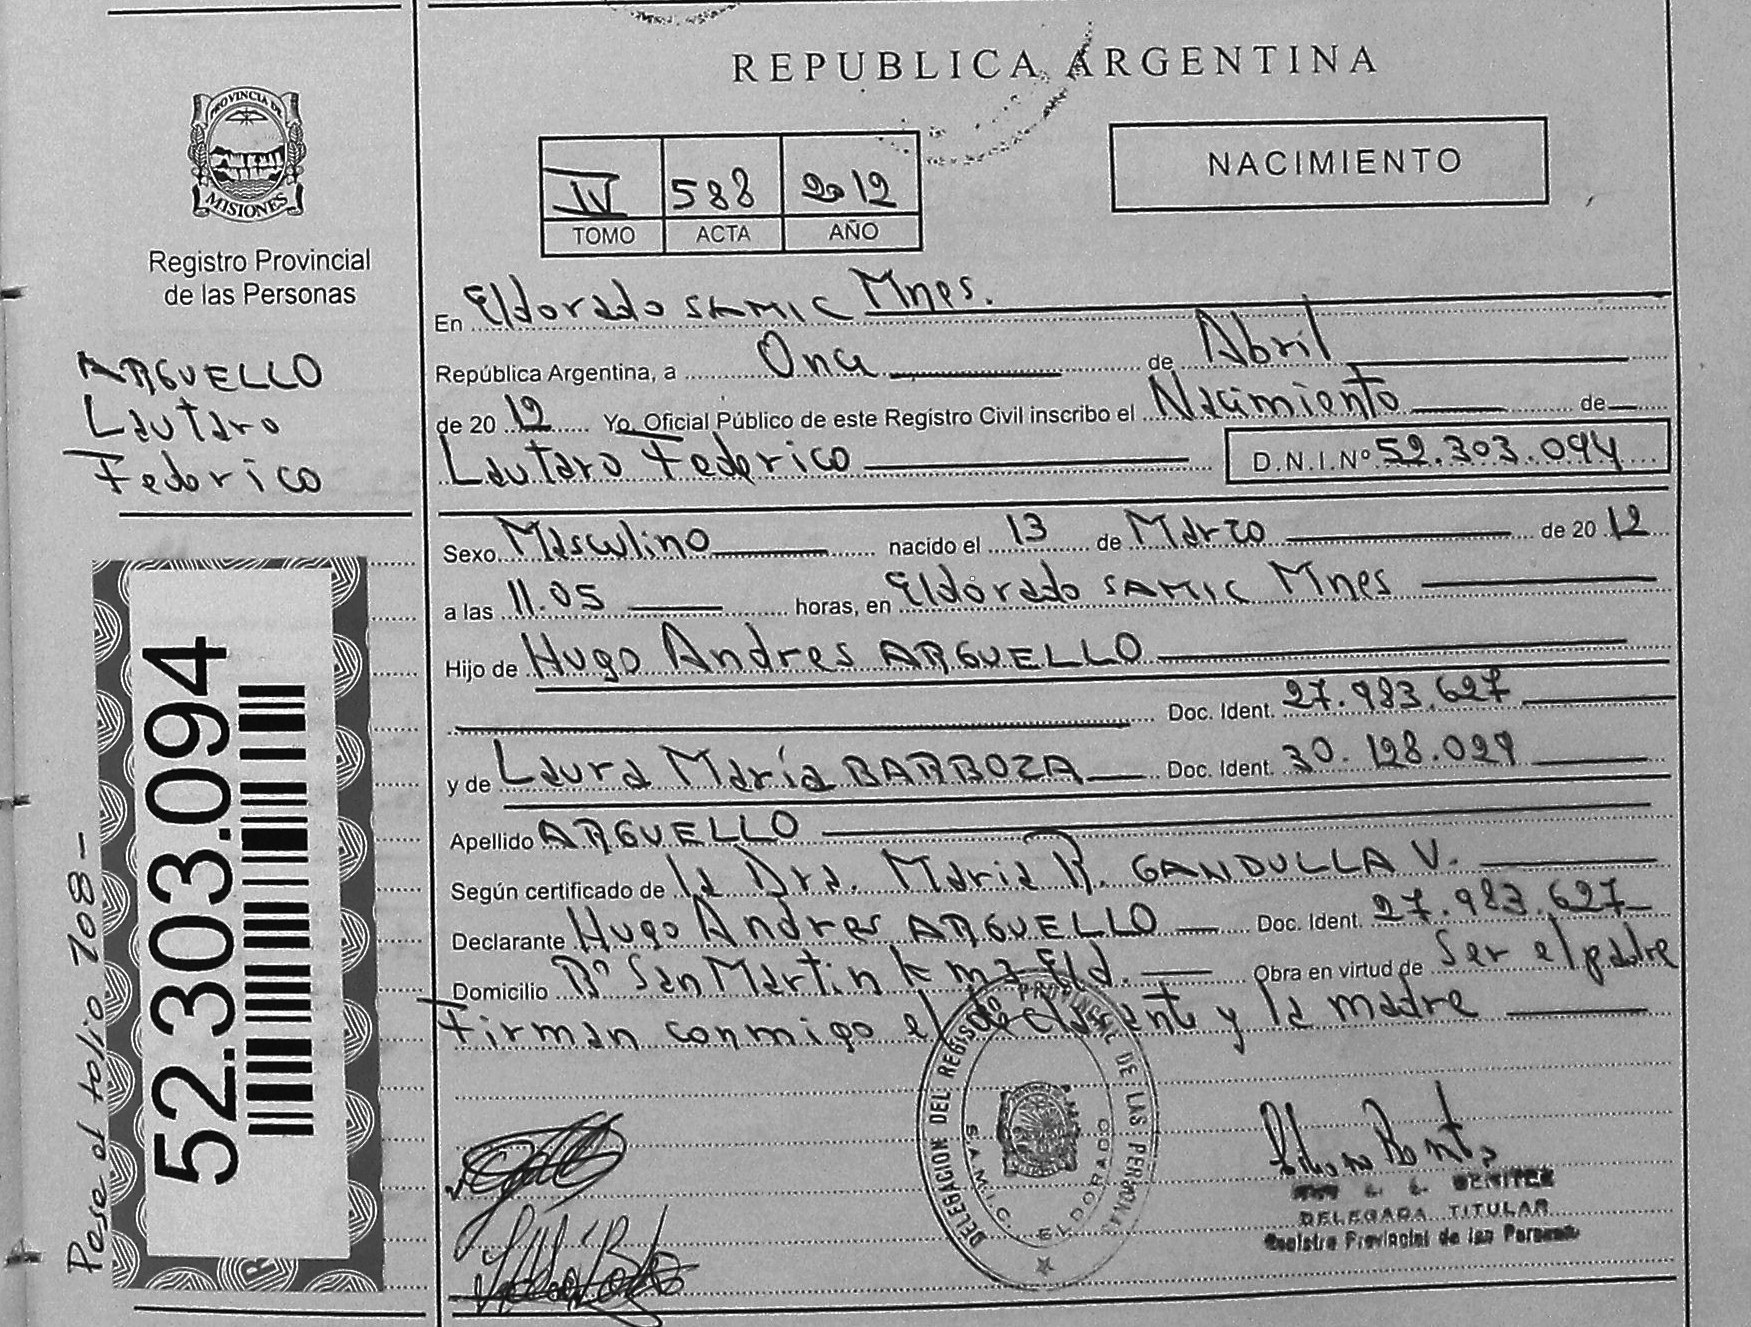 REPUBLICA ARGENTINA
PROVINCIA DE
MISIONES
Registro Provincial
de las Personas
IV 588 2012
TOMO ACTA AÑO
NACIMIENTO
ARGUELLO
Lautaro
Federico
En Eldorado SAMIC Mnes.
República Argentina, a Once de Abril
de 2012 Yo, Oficial Público de este Registro Civil inscribo el Nacimiento de
Lautaro Federico D.N.I.Nº 52.303.094
Sexo Masculino nacido el 13 de Marzo de 2012
a las 11.05 horas, en Eldorado SAMIC Mnes
Hijo de Hugo Andres ARGUELLO
Doc. Ident. 27.983.627
y de Laura María BARBOZA Doc. Ident. 30.128.029
Apellido ARGUELLO
Según certificado de la Dra. Maria R. GANDULLA V.
Declarante Hugo Andres ARGUELLO Doc. Ident. 27.983.627
Domicilio Bº San Martin km 3 Eld. Obra en virtud de Ser el padre
Firman conmigo el declarante y la madre
52.303.094
Pase al folio 708-
DELEGACION DEL REGISTRO PROVINCIAL DE LAS PERSONAS
S.A.M.I.C. ELDORADO
BENITEZ
DELEGADA TITULAR
Registro Provincial de las Personas